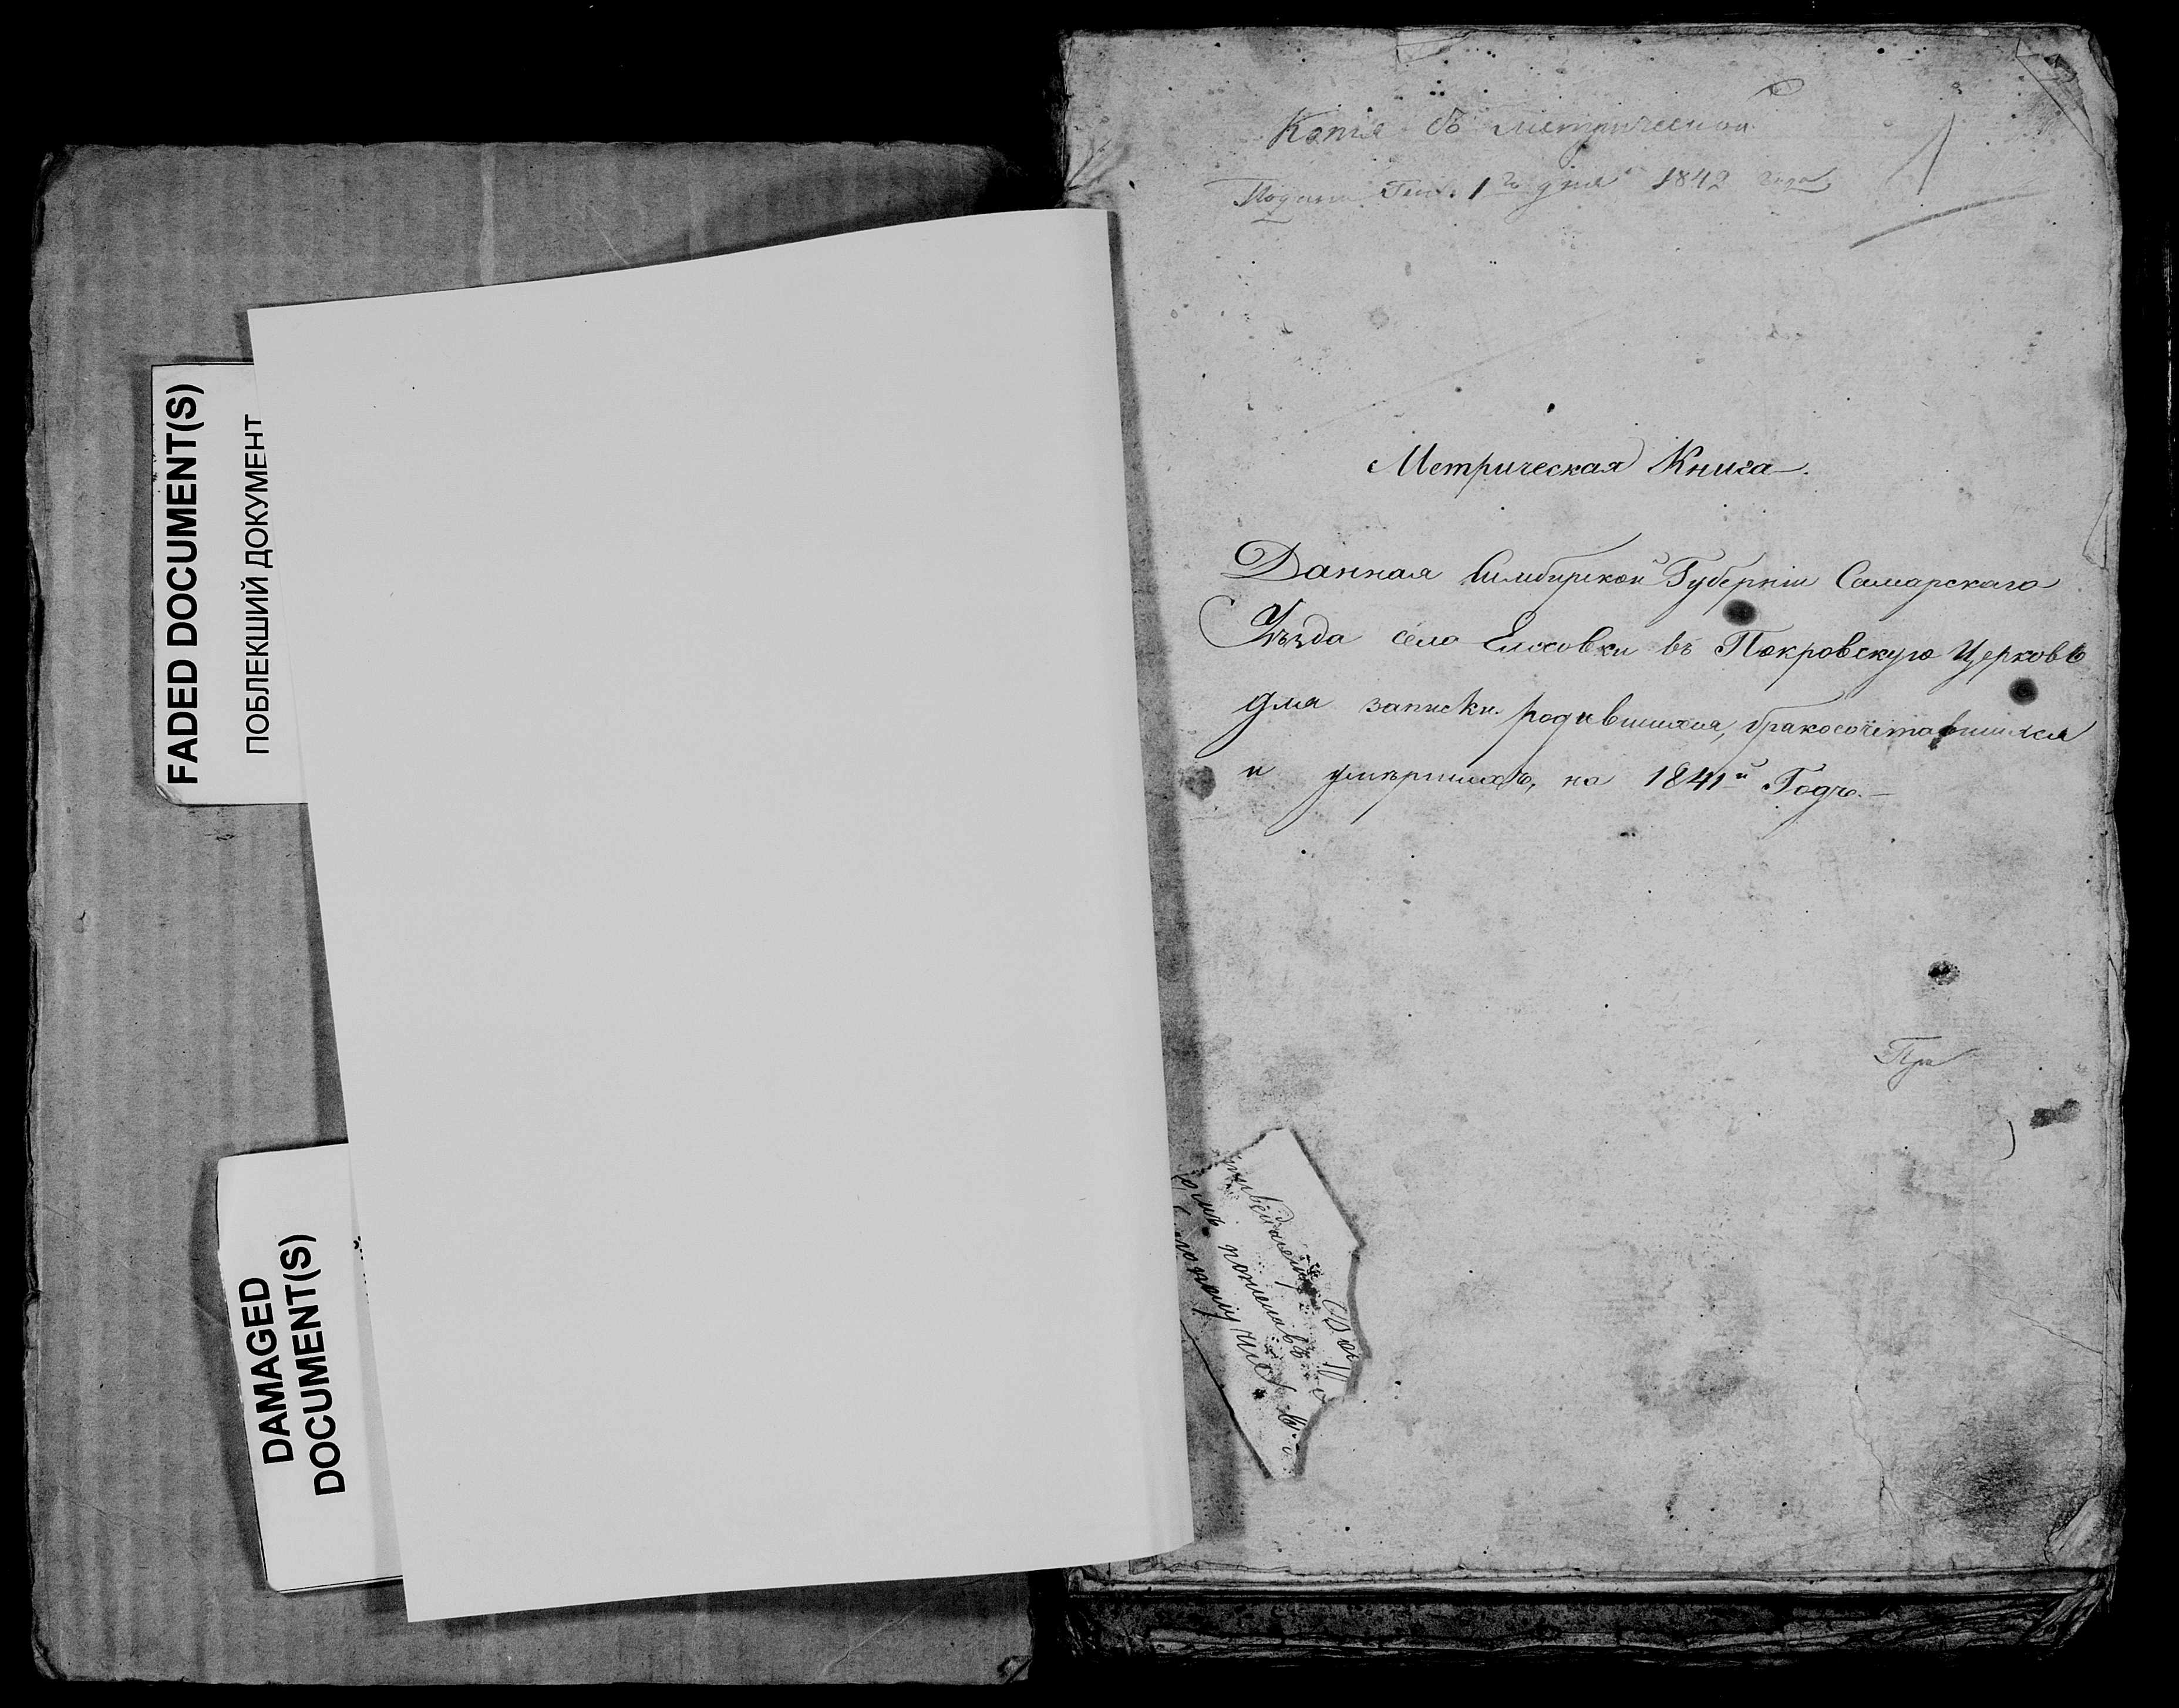 FADED DOCUMENT(S)
ПОБЛЕКШИЙ ДОКУМЕНТ
DAMAGED
DOCUMENT(S)
Копія съ метрической
1го дня 1842 года
1
Метрическая Книга
Данная Симбирской Губерніи Самарскаго
Уѣзда села Елховки въ Покровскую Церковь
для записки родившихся, бракосочетавшихся
и умершихъ, на 1841й Годъ.